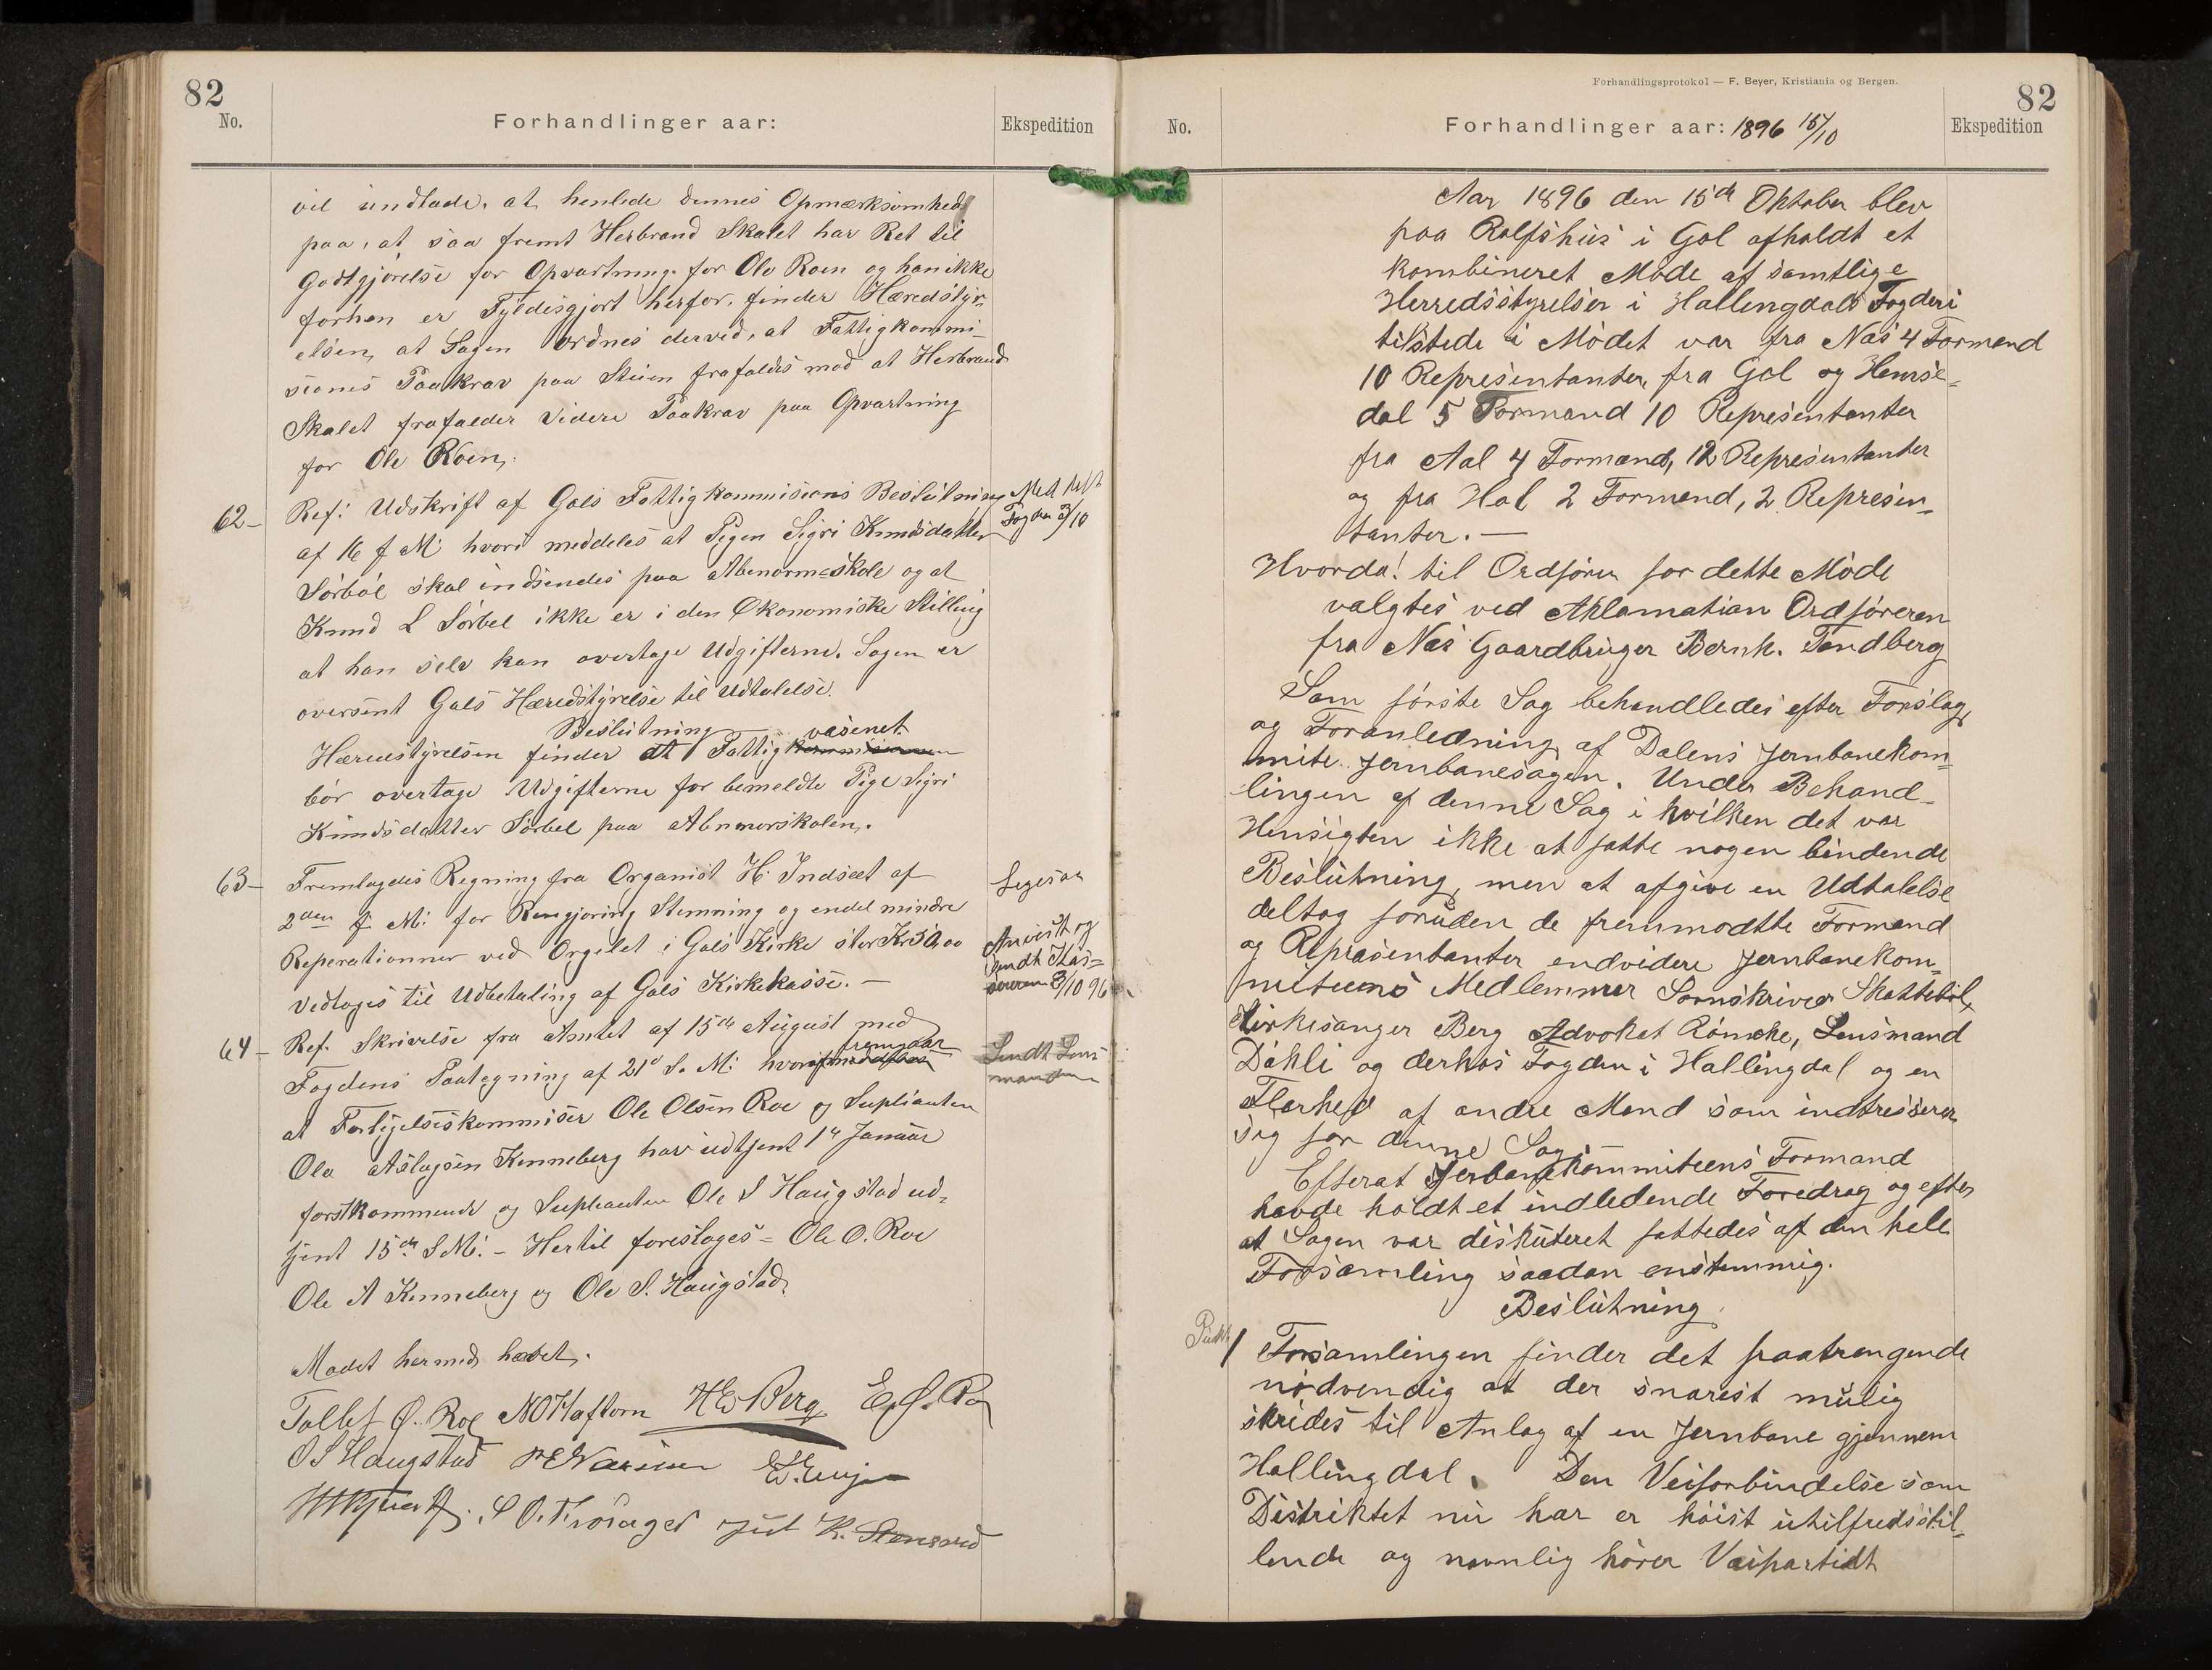 82
No.
Forhandlinger aar:
Ekspedition
vil undlade, at henlede dennes Opmærksomhed
paa, at saa fremt Herbrand Skalet har Ret til
Godtgjörelse for Opvartning for Ole Roen og han ikke
forhen er Fyldisgjort herfor, finder Herredstyr-
elsen, at Sagen ordnes derved, at Fattigkommi-
sionens Paakrav paa Steien frafaldes mod at Herbrand
Skalet frafalder videre Paakrav paa Opvartning
for Ole Roen,
62-
Ref: Udskrift af Gols Fattigkommisions Beslutning
af 16 f M: hvori meddeles at Pigen Sigri Knudsdatter
Sörböl skal indsendes paa Abnorm=skole og at
Knud L Sörbel ikke er i den Økonomiske Stilling
at han selv kan overtage Udgifterne. Sagen er
oversent Gols Hæredstyrelse til Udtalelse.
Fogden 3/10
Beslutning
væsenet
Hæredstyrelsen finder at Fattigkommisionen
bör overtage Udgifterne for bemeldte Pige Sigri
Knudsdatter Sörbel paa Abnormskolen.
63-
Fremlagdes Regning fra Organist H. Indsæt af
2den f. M: for Rengjöring Stemning og endel mindre
Reperationner ved Orgelet i Gols Kirke stor Kr 50,00
Vedtoges til Udbetaling af Gols Kirkekasse. -
Anvist og
sendt Kas=
sereren 3/10 96
64-
Ref. Skrivelse fra Amtet af 15de August med
fremgaar
Fogdens Paategning af 21d s. M: hvoraf meddeles
at Forligelseskommisær Ole Olsen Roe og Suplianten
Ola Aslagsen Kinneberg har udtjent 1st Januar
förstkommende og Suplianten Ole S Haugstad ud=
tjent 15de S M: - Hertil foreslages = Ole O. Roe
Ole A Kinneberg og Ole S. Haugstad.
Sendt Lens
manden
Mødet hermed hævet.
Tollef Ø. Roe NO Haftorn HE Berg
O S Haugstad
K. Stensrud
Forhandlingsprotokol — F. Beyer, Kristiania og Bergen.
82
No.
Forhandlinger aar: 1896 15/10
Ekspedition
Aar 1896 den 15de Oktober blev
paa Rolfshus i Gol afholdt et
kombineret Möde af samtlige
Herredsstyrelser i Hallingdals Fogderi
tilstede i Mödet var fra Nes 4 Formend
10 Representanter, fra Gol og Hemse=
dal 5 Formænd 10 Representanter
fra Aal 4 Formænd, 12 Representanter
og fra Hol 2 Formend, 2 Represen=
tanter. —
Hvorda! til Ordförer for dette Möde
valgtes ved Aklamation Ordföreren
fra Nes Gaardbruger Bernh. Tandberg
Som förste Sag behandledes efter Forslag,
og Foranledning af Dalens Jernbanekom=
mite Jernbanesagen. Under Behand-
lingen af denne Sag i hvilken det var
Hensigten ikke at fatte nogen bindende
Beslutning, men at afgive en Udtalelse
deltog foruden de fremmödtte Formend
og Repræsentanter endvidere Jernbanekom=
miteens Medlemmer Sorenskriver Skattebøl,
Kirkesanger Berg Advokat Römcke, Lensmand
Dökli og derhos Fogden i Hallingdal og en
Flerhed af andre Mend som indtresserer
sig for denne Sag.
Efterat Jerbanekommiteens Formand
havde holdt et indledende Foredrag og efter
at Sagen var diskuteret fattedes af den hele
Forsamling saadan enstemmig.
Beslutning
Punkt 1
Forsamlingen finder det paatrængende
nödvendig at der snarest mulig
skrides til Anlæg af en Jernbane gjennem
Hallingdal. Den Veiforbindelse som
Distriktet nu har er höist utilfredsstil=
lende og navnlig hörer Veipartidt